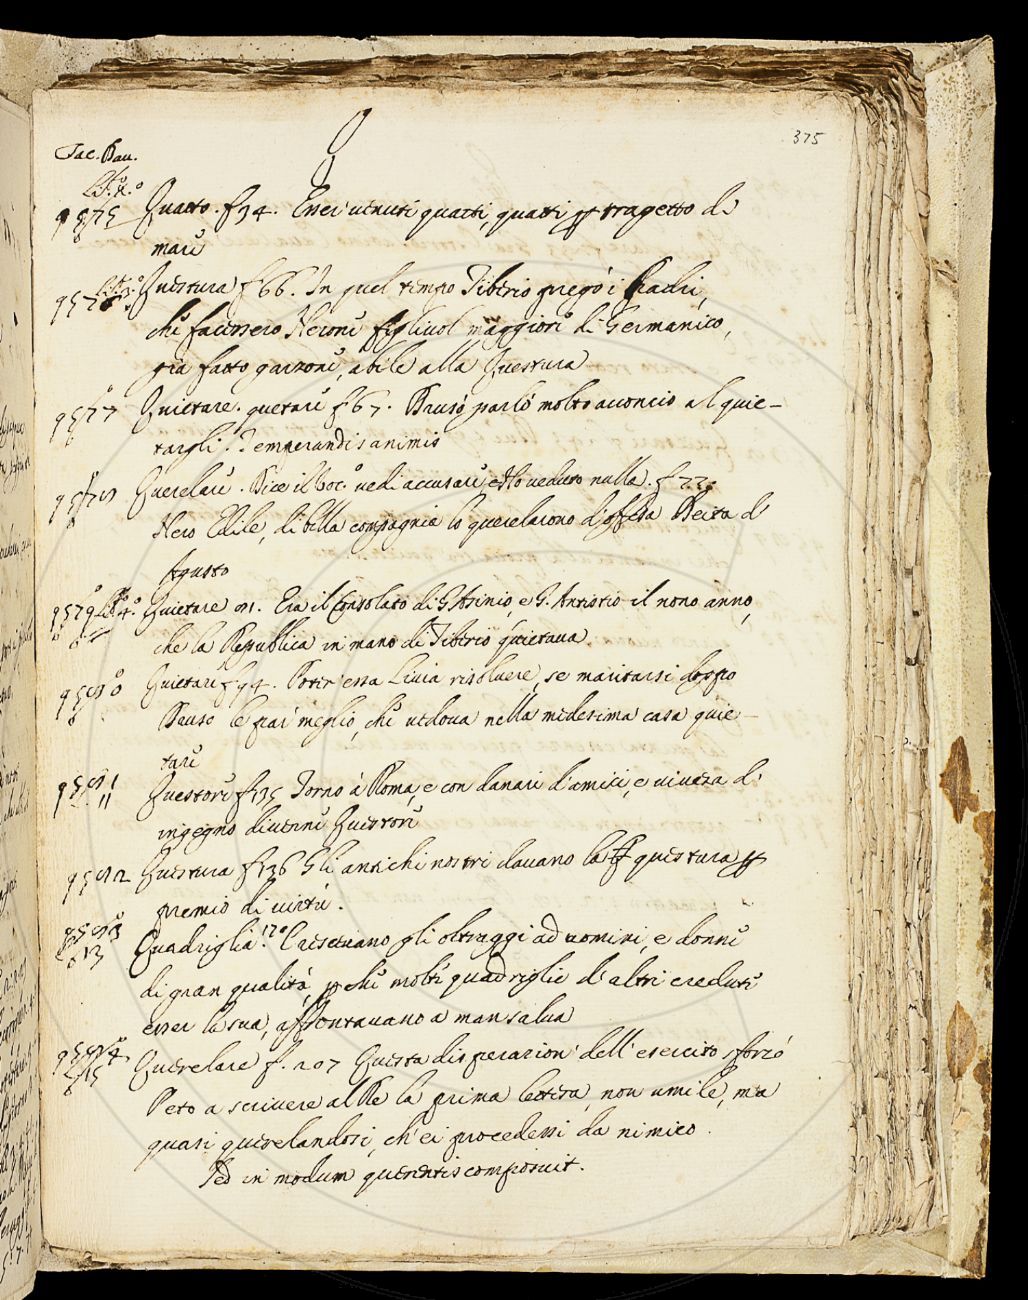 Q
375
Tac. Dav.
L. P.º
9575 Quatto. f 34. Esser venuti quatti, quatti ꝑ tragetto di
mare
9576 Questura f 66. In quel tempo Tiberio pregò i Padri,
che facessero Nerone figliuol maggiore di Germanico,
già fatto garzone, abile alla Questura
9577 Quietare. quetare f 67. Druso parlò molto acconcio al quie-
targli. Temperandis animis
9578 Querelare. Dice il Voc.º vedi accusare e Ho veduto nulla. f 77.
Nero Edile, di bella compagnia lo querelarono d'offesa Deità d'
Agusto
9579 Quietare 91. Era il Consolato di G. Asinio, e G. Antistio il nono anno,
che la Republica in mano di Tiberio quietava
9580 Quietare f 94. Poter essa Livia risolvere, se maritarsi doppo
Druso le par meglio, che vedova nella medesima casa quie
tare
9581 Questore f 135 Tornò à Roma, e con danari d'amici, e vivezza d'
ingegno divenne Questore
9582 Questura f 136 Gli antichi nostri davano la questura ꝑ
premio di virtù.
9583 Quadriglia. 170 Crescevano gli oltraggi ad uomini, e donne
di gran qualità, ꝑ che molte quadriglie d'altri credute
esser la sua, affrontavano a man salva
9584 Querelare f. 207 Questa disperazione dell'esercito sforzò
Peto a scrivere al Re la prima lettera, non umile, ma
quasi querelandosi, ch'ei procedessi da nimico.
Sed in modum querentis composuit.